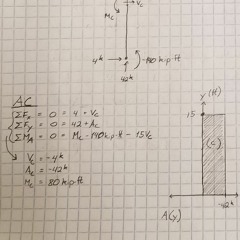 Vc
Mc
4ᵏ
-140 kip·ft
42ᵏ
AC
ΣFx = 0 = 4 + Vc
ΣFy = 0 = 42 + Ac
ΣMA = 0 = Mc - 140 kip·ft - 15Vc
Vc = -4ᵏ
Ac = -42ᵏ
Mc = 80 kip·ft
y (ft)
15
(c)
A(y)
-42ᵏ